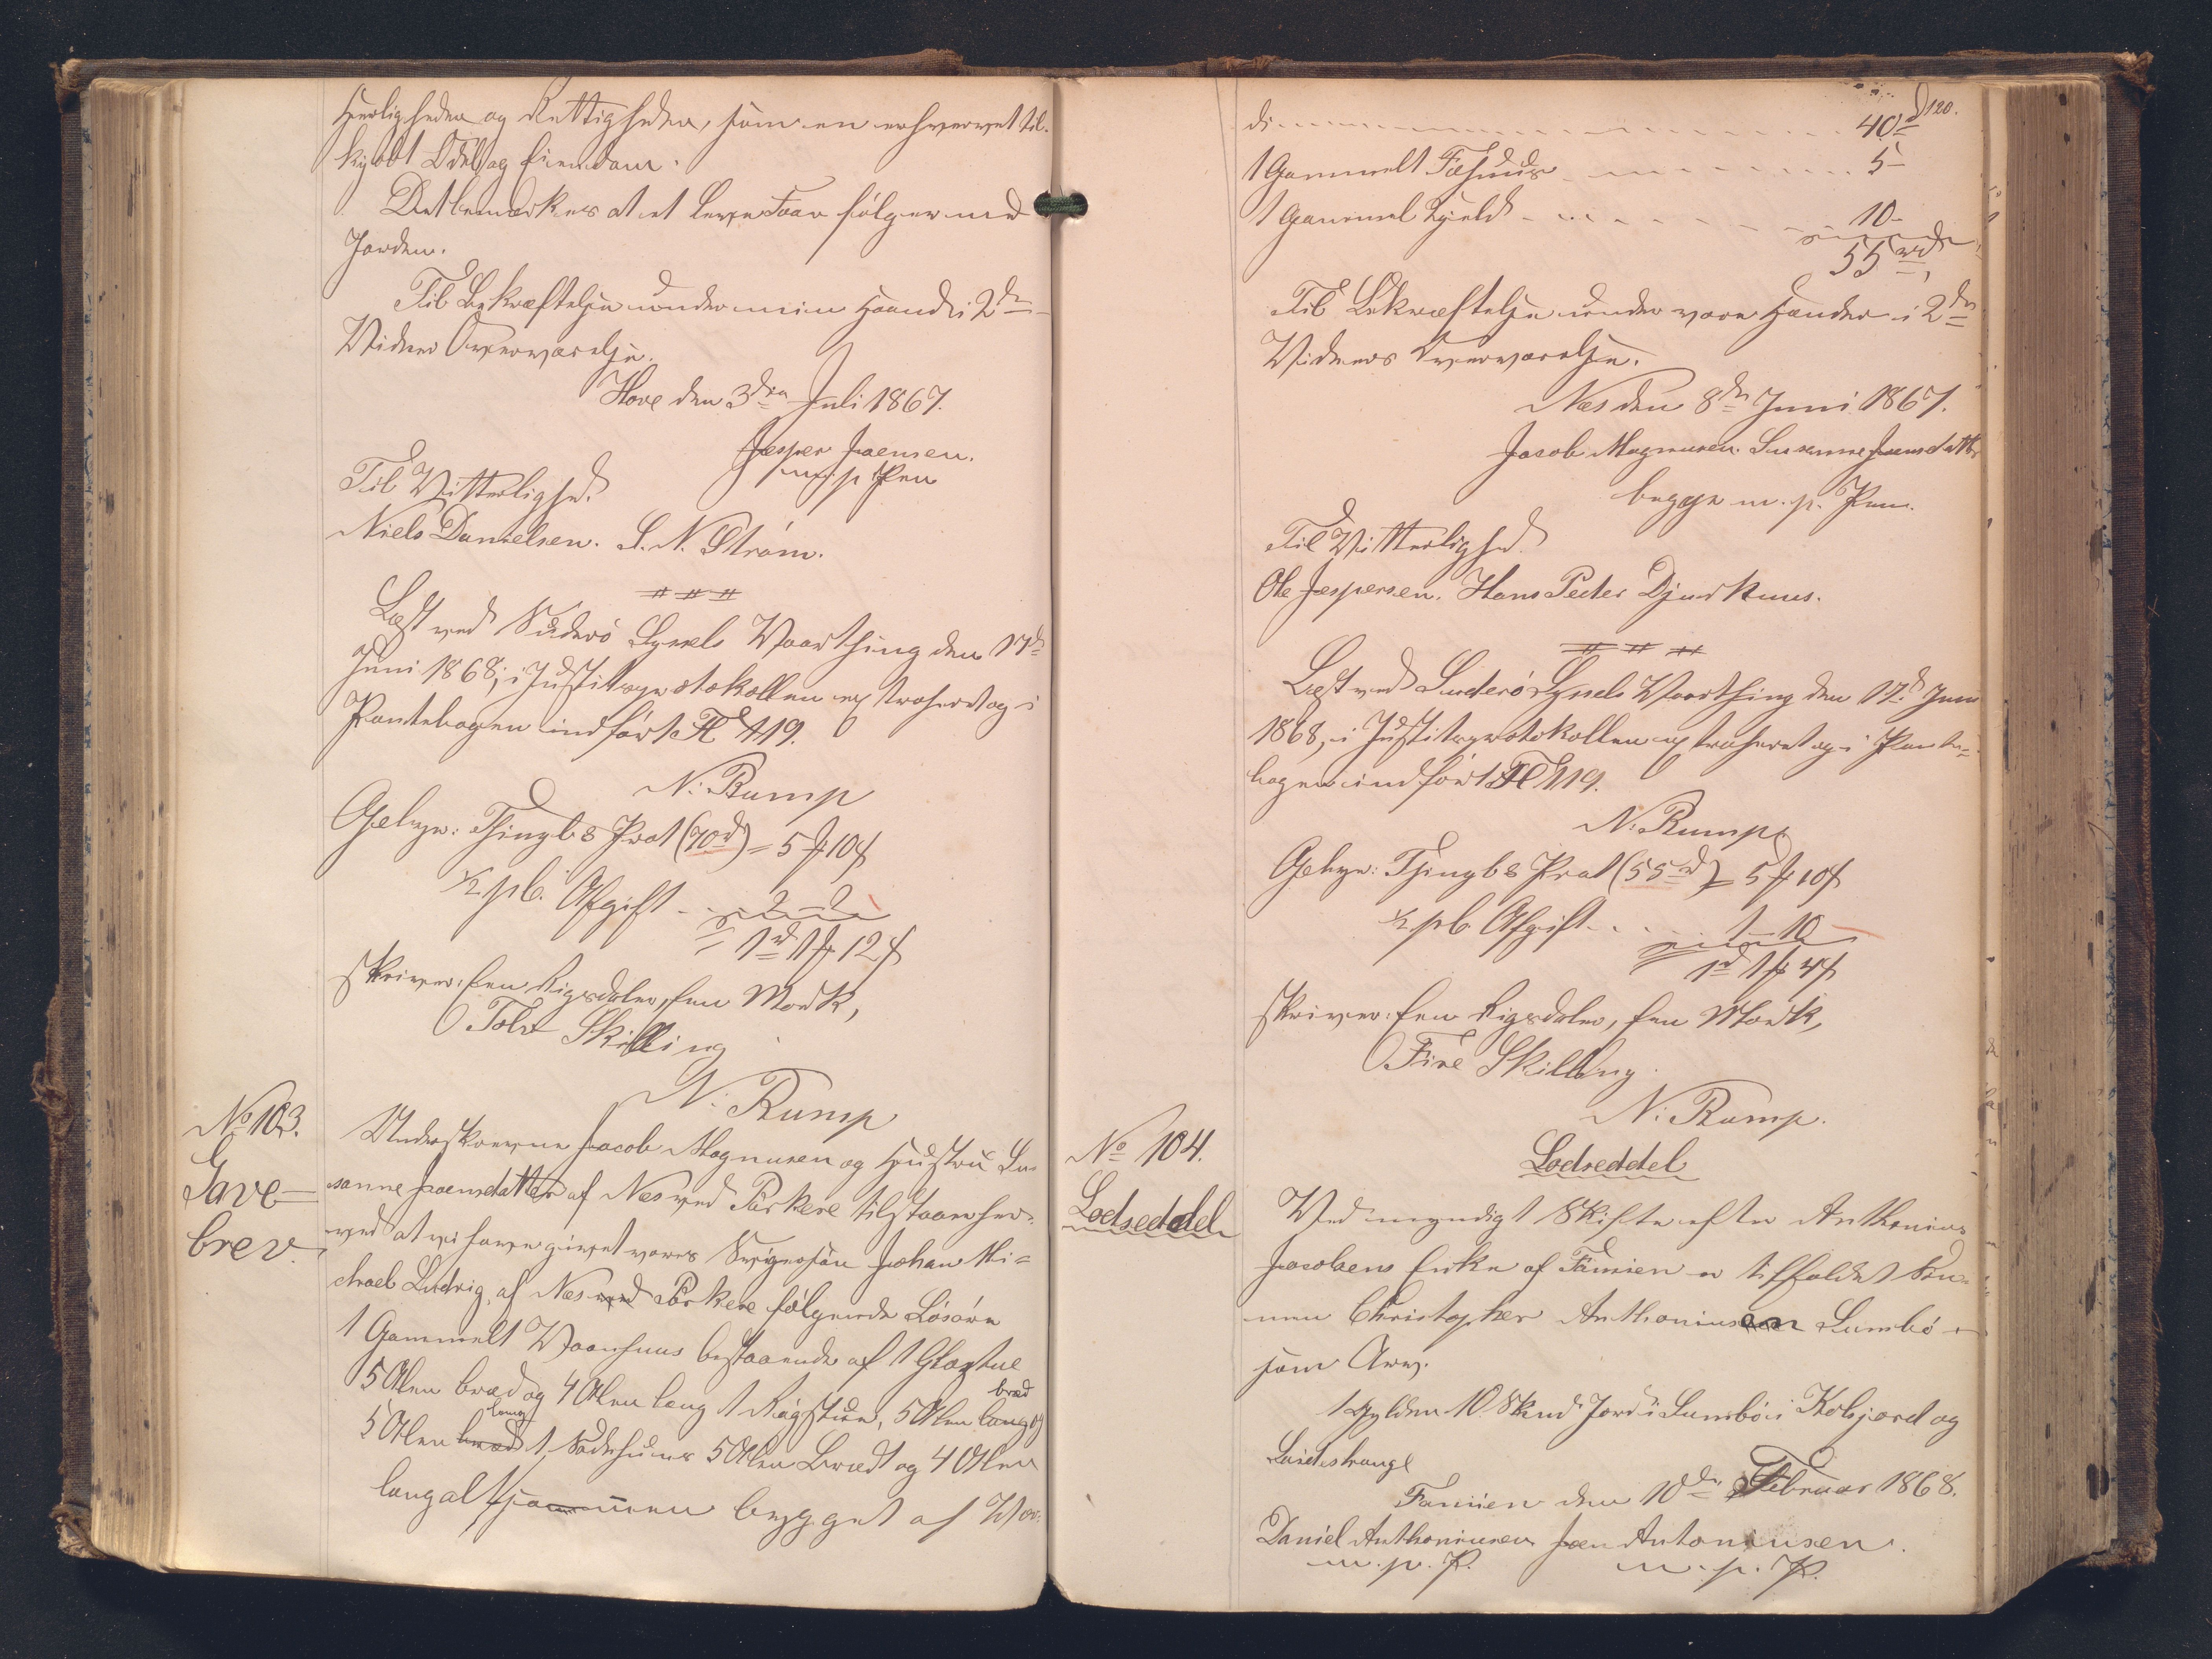 Herligheder og Rettigheder, som en erhvervet til-
kjøbt Odel og Eiendom.
Det bemærkes at et Leve Faar følger med
Jorden.
Til Bekræftelse under min Haand i 2de
Vidner Overværelse.
Hove den 3die Juli 1867.
Jesper Joensen.
m. p. Pen
Til Vitterlighed
Niels Danielsen. S. N. Strøm.
Læst ved Suderø Syssels Vaarthing den 17de
Juni 1868, i Justitsprotokollen extraheret og i
Pantebogen indført Fol 119.
N. Rump
Gebyr: Thingls Prot (70rd) = 5 # 10 ß
½ pC. Afgift - 2 - 2
1rd 1 # 12 ß
skriver: Een Rigsdaler, Een Mark,
Tolv Skilling
N. Rump
No 103.
Gave-
brev.
Underskrevne Jacob Magnusen og Hustru Su-
sanne Joensdatter af Næs ved Porkere tilstaar her-
ved at vi have givet vores Svigersøn Johan Mi-
chael Ludvig, af Næs ved Porkere følgende Løsøre
1 Gammelt Vaanhuus bestaaende af 1 Glastue
5 Alen bred og 4 Alen lang 1 Røgstue, 5 Alen lang bred og
5 Alen bred lang 1, Sædehuus 5 Alen Bredt og 4 Alen
lang alt sammen bygget af
120.
di 40rd
1 Gammelt Fæhuus 5 -
1 Gammel Hjeld 10 -
55rd
Til Bekræftelse under vore Hænder i 2de
Vidners Overværelse.
Næs den 8de Juni 1867.
Jacob Magnusen. Susanne Joensdatter
begge m. p. Pen.
Til Vitterlighed
Ole Jespersen. Hans Peter Djurhuus.
Læst ved Suderø Syssels Vaarthing den 17de Juni
1868, i Justitsprotokollen extraheret og i Pante-
bogen indført Fol 119.
N. Rump
Gebyr: Thingls Prot (55rd) = 5 # 10 ß
½ pC. Afgift - 1 - 10
1rd 1 # 4 ß
skriver: Een Rigsdaler, Een Mark,
Fire Skilling.
N. Rump.
No 104.
Lodseddel
Lodseddel
Ved myndigt Skifte efter Anthonius
Jacobsens Enke af Famien er tilfaldet Søn-
nen Christopher Anthoniusen Sumbø
som Arv.
1 Gylden 10 Skind Jord i Sumbø i Kobjord og
Famien den 10de Februar 1868.
Daniel Anthoniusen Joen Antoniusen.
m. p. P. m. p. P.